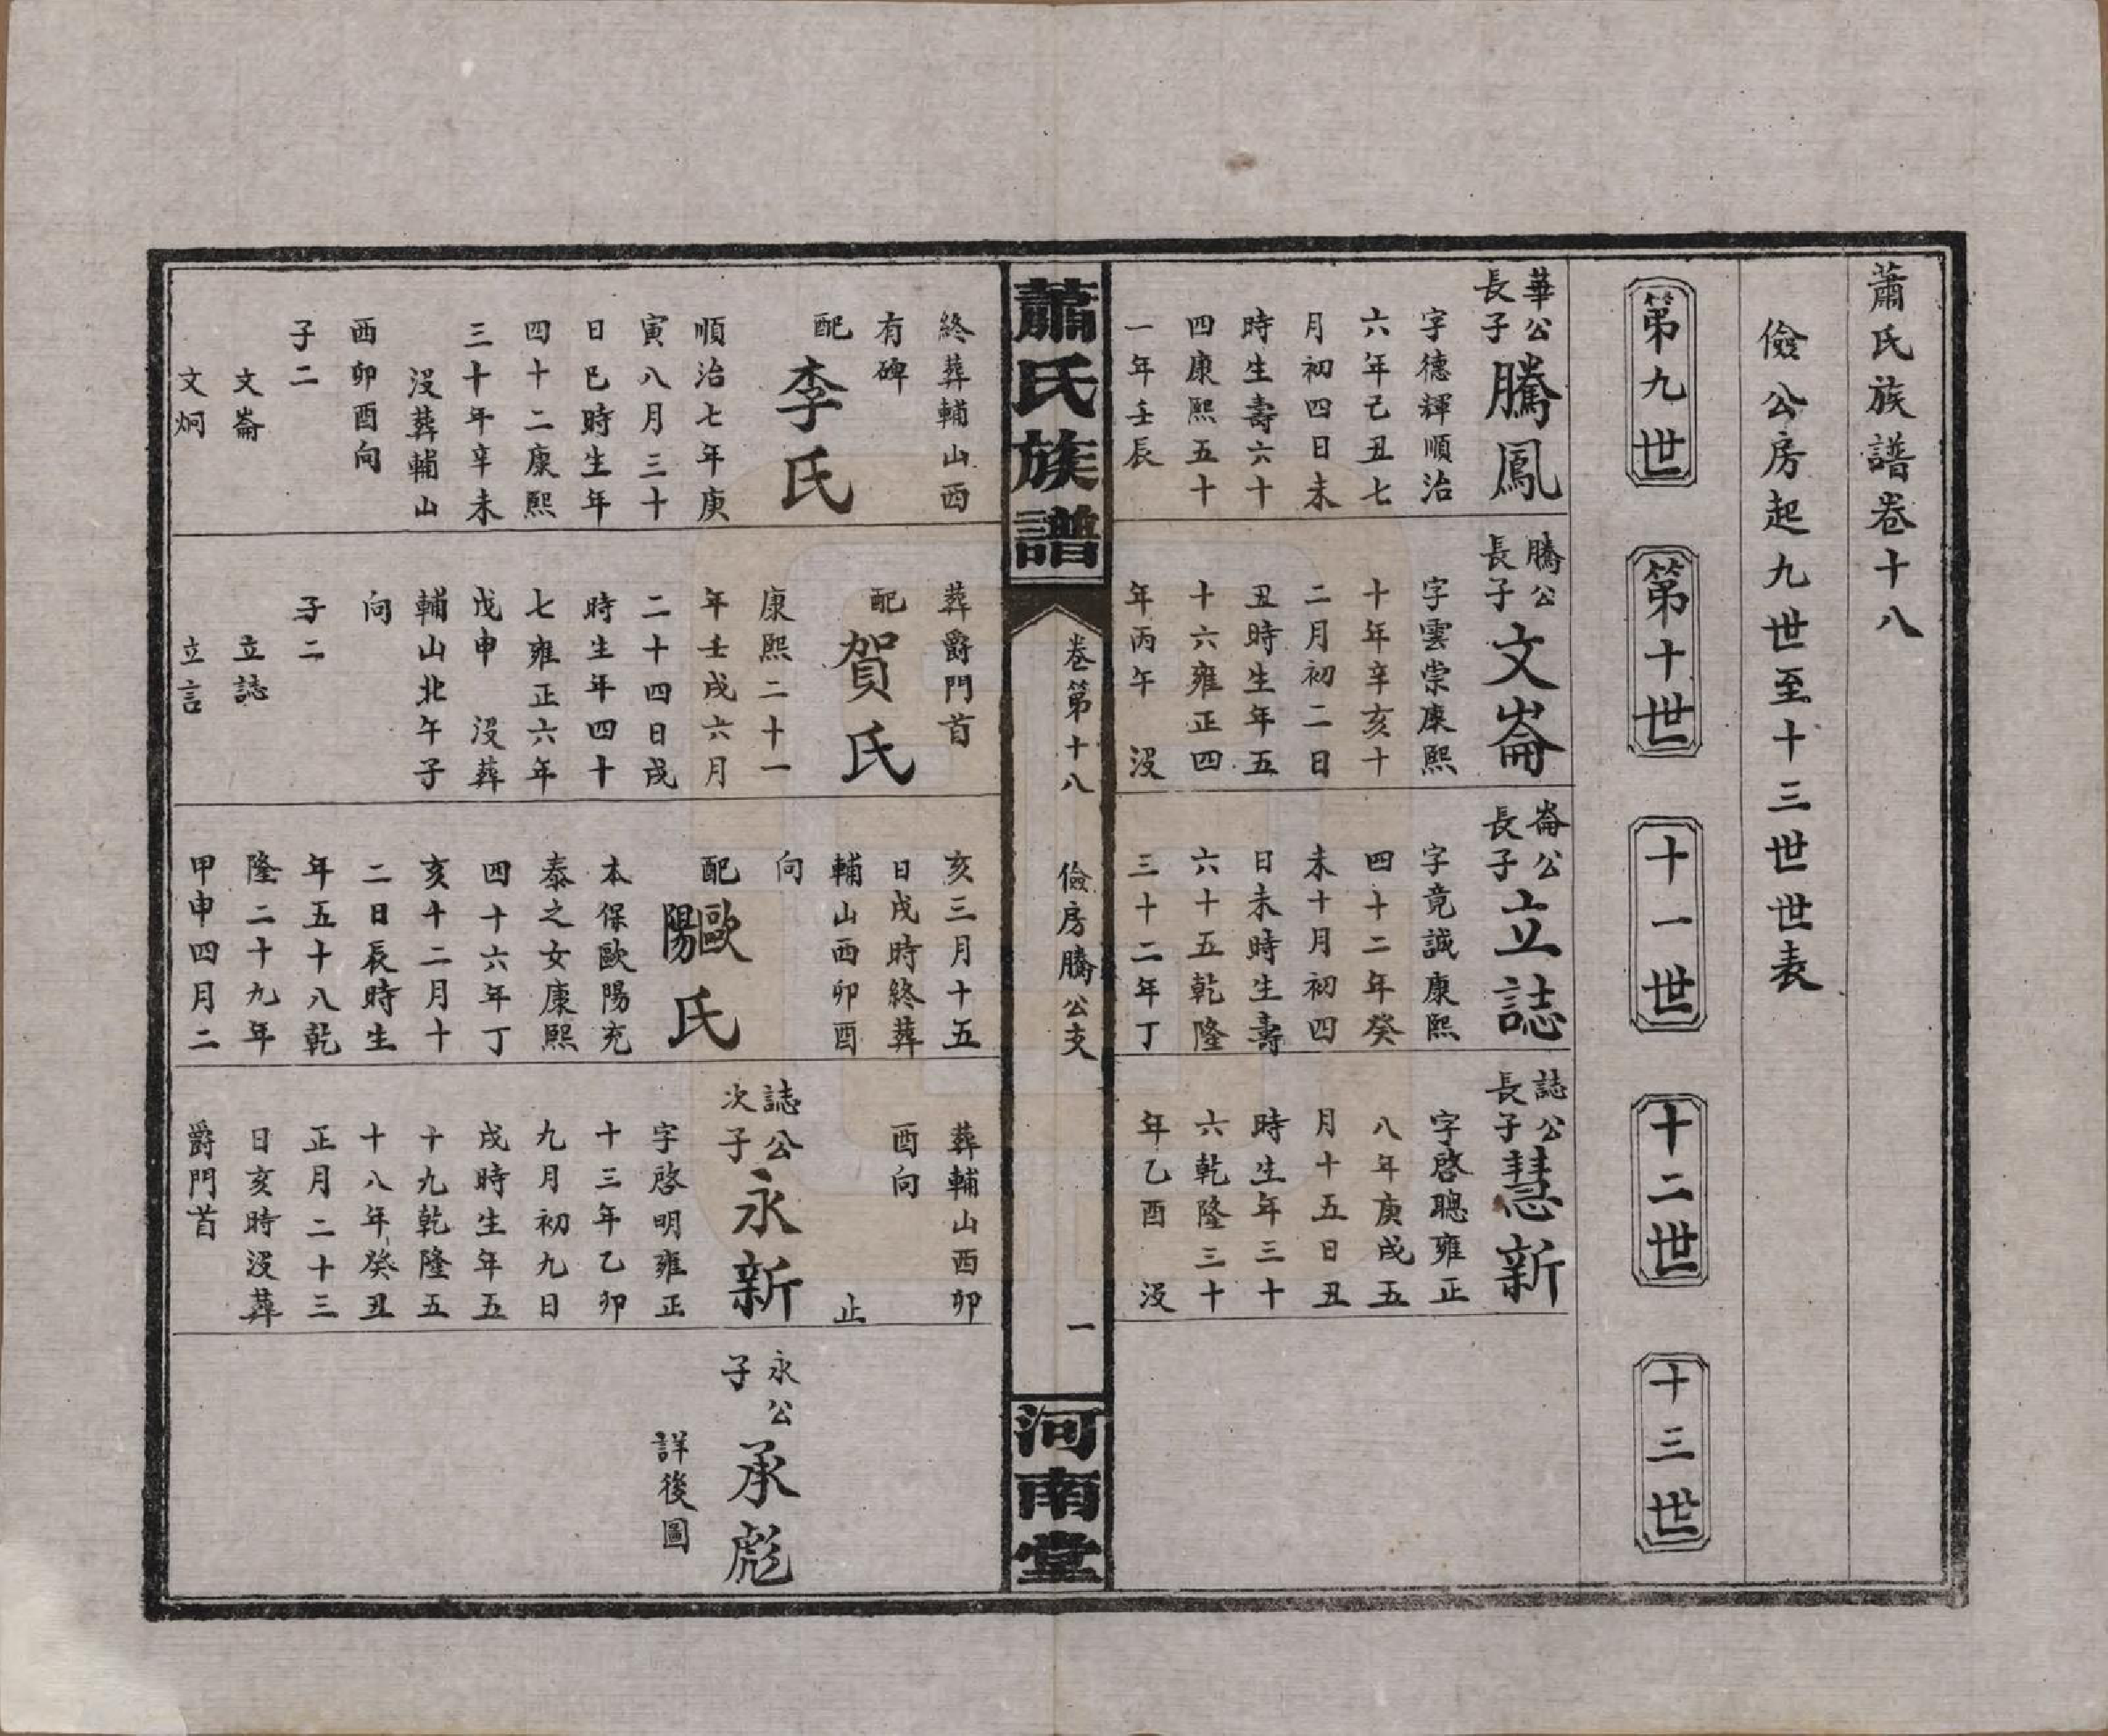 蕭氏族譜卷十八
儉公房起九世至十三世世表
第九世
第十世
十一世
十二世
十三世
華公
長子
騰鳳
字德輝順治
六年己丑七
月初四日未
時生壽六十
四康熙五十
一年壬辰
終葬輔山酉
有碑
配
李氏
順治七年庚
寅八月三十
日巳時生年
四十二康熙
三十年辛未
沒葬輔山
酉卯酉向
子二
文崙
文炯
騰公
長子
文崙
字雲崇康熙
十年辛亥十
二月初二日
丑時生年五
十六雍正四
年丙午 沒
葬爵門首
配
賀氏
康熙二十一
年壬戌六月
二十四日戌
時生年四十
七雍正六年
戊申 沒葬
輔山北午子
向
子二
立誌
立言
崙公
長子
立誌
字竟誠康熙
四十二年癸
未十月初四
日未時生壽
六十五乾隆
三十二年丁
亥三月十五
日戌時終葬
輔山酉卯酉
向
配
歐陽氏
本保歐陽充
泰之女康熙
四十六年丁
亥十二月十
二日辰時生
年五十八乾
隆二十九年
甲申四月二
誌公
長子
慧新
字啓聰雍正
八年庚戌五
月十五日丑
時生年三十
六乾隆三十
年乙酉 沒
葬輔山酉卯
酉向
止
誌公
次子
永新
字啓明雍正
十三年乙卯
九月初九日
戌時生年五
十九乾隆五
十八年癸丑
正月二十三
日亥時沒葬
爵門首
永公
子
承彪
詳後圖
蕭氏族譜
卷第十八
儉房騰公支
一
河南堂